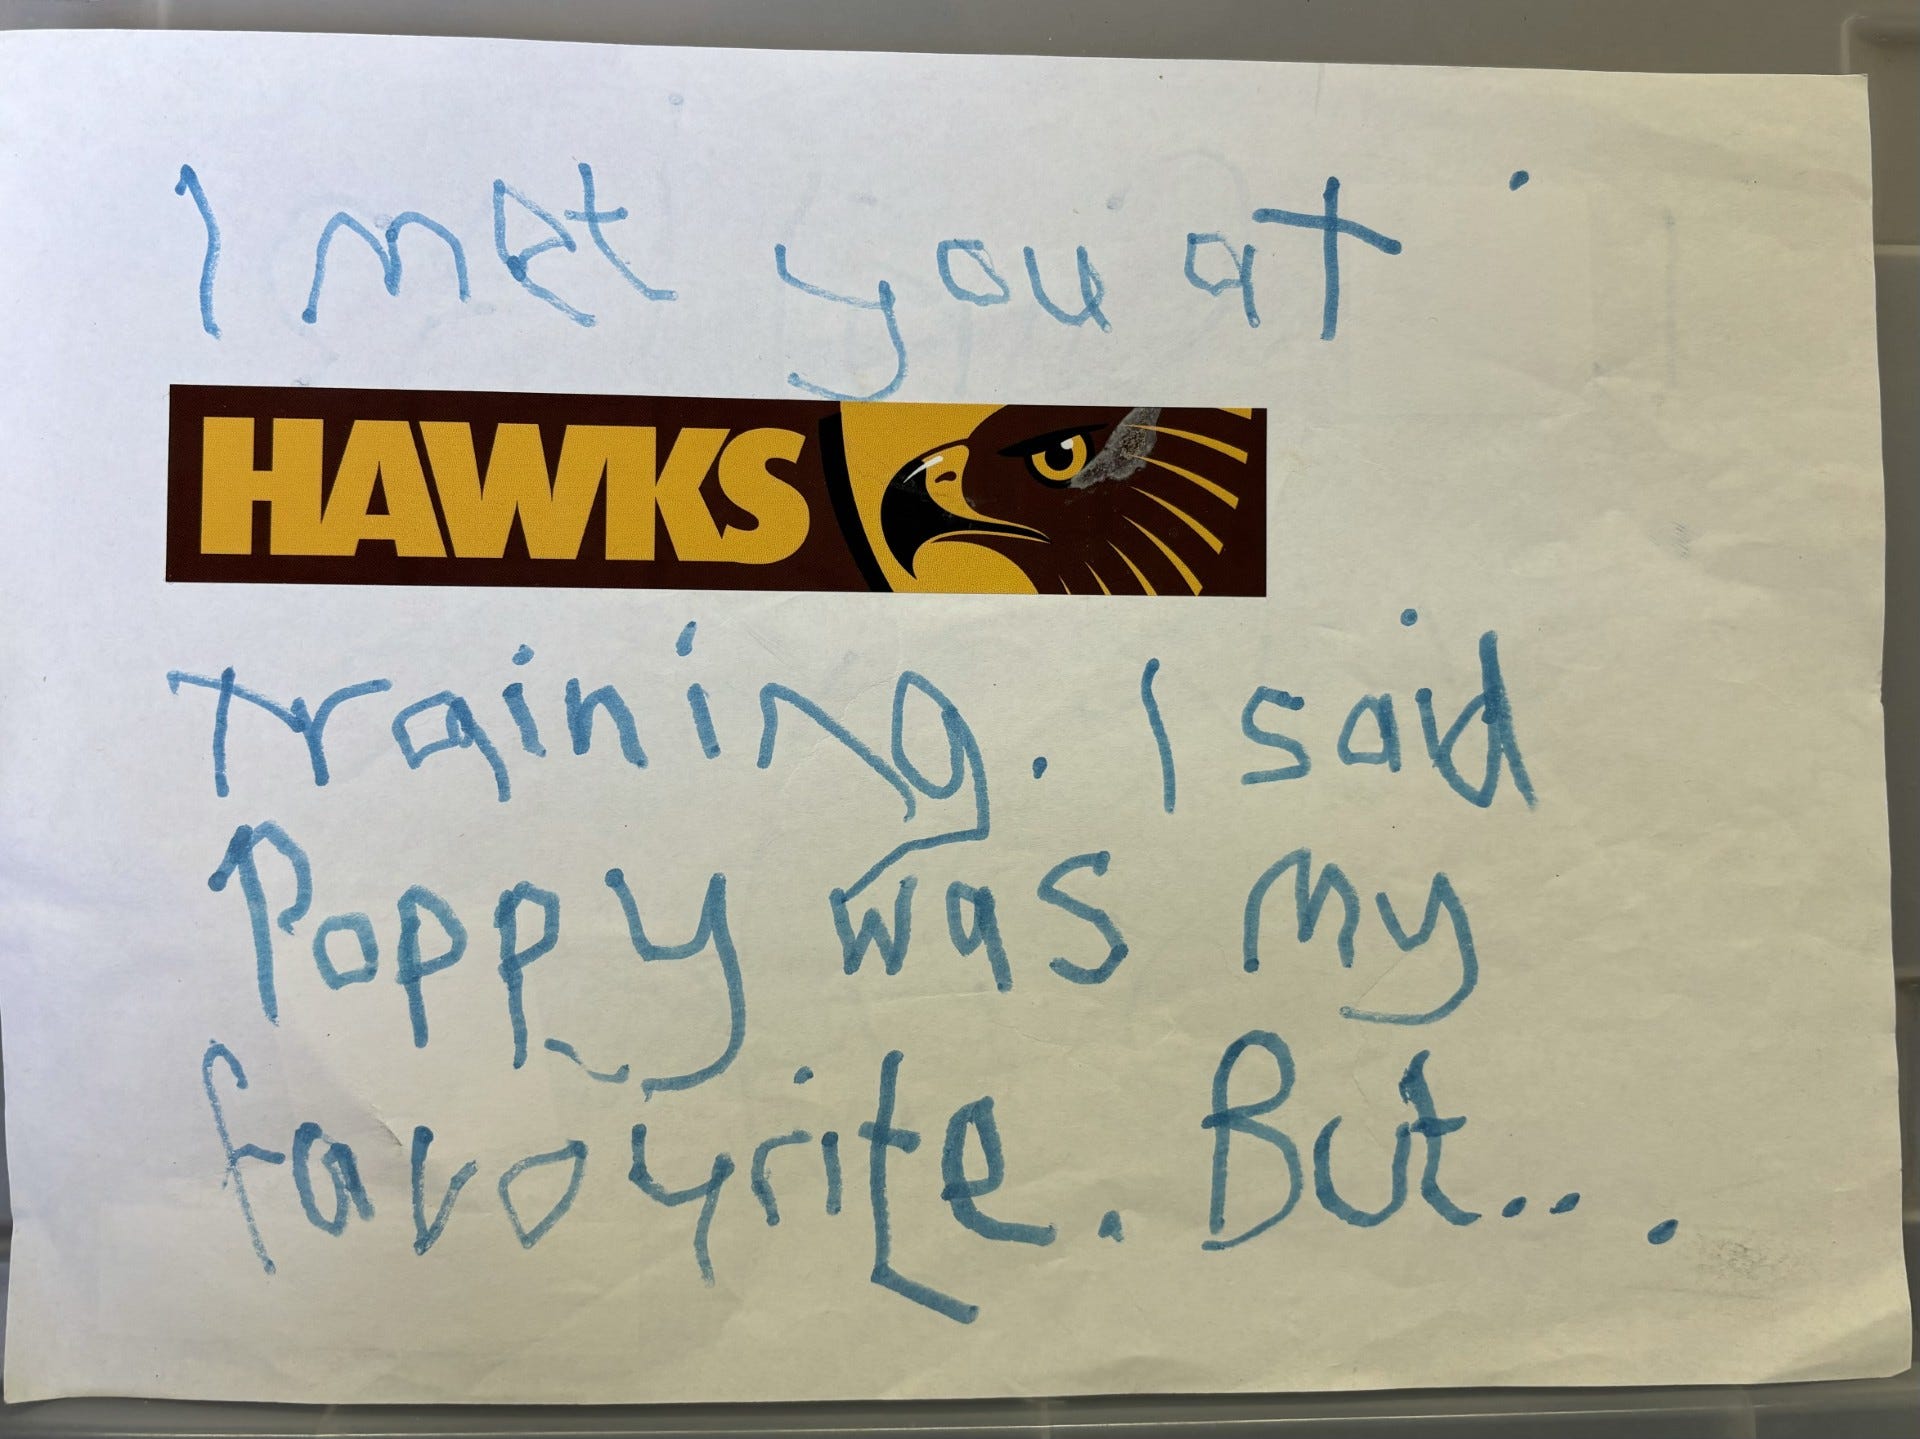 I met you at
HAWKS
training. I said
Poppy was my
favoyrite. But...